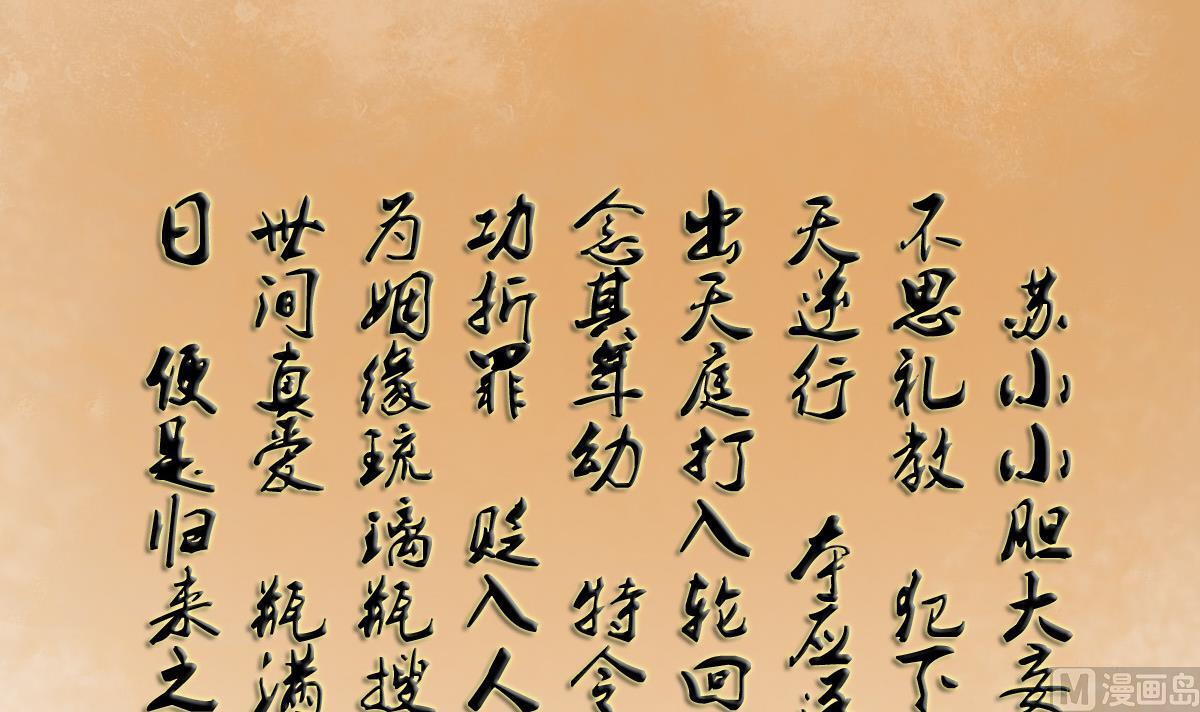 苏小小胆大妄
不思礼教 犯下
天逆行 本应
出天庭打入轮回
念其年幼 特令
功折罪 贬入人
为姻缘琉璃瓶搜
世间真爱 瓶满
日 便是归来之
漫画岛